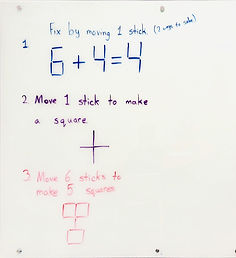 Fix by moving 1 stick (2 ways to solve)
1.
6+4=4
2. Move 1 stick to make
a square
3. Move 6 sticks to
make 5 squares